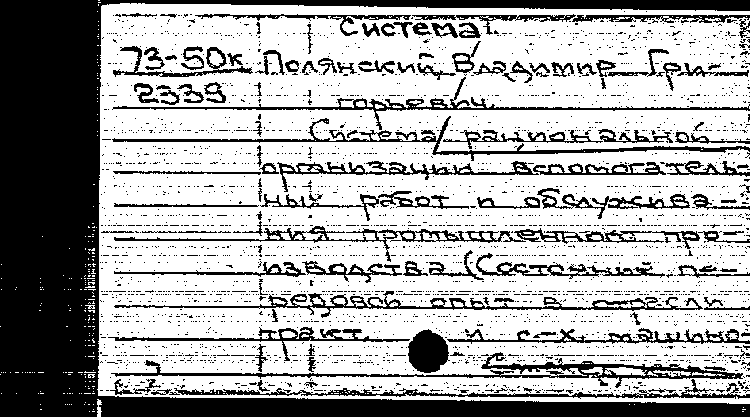 Система.
73-50к Полянский, Владимир Гри-
2339 горьевич.
Система рациональной
организации вспомогатель-
ных работ и обслужива-
ния промышленного про-
изводства (Состояние пе-
редовой опыт в отрасли
тракт. и с-х. машино-